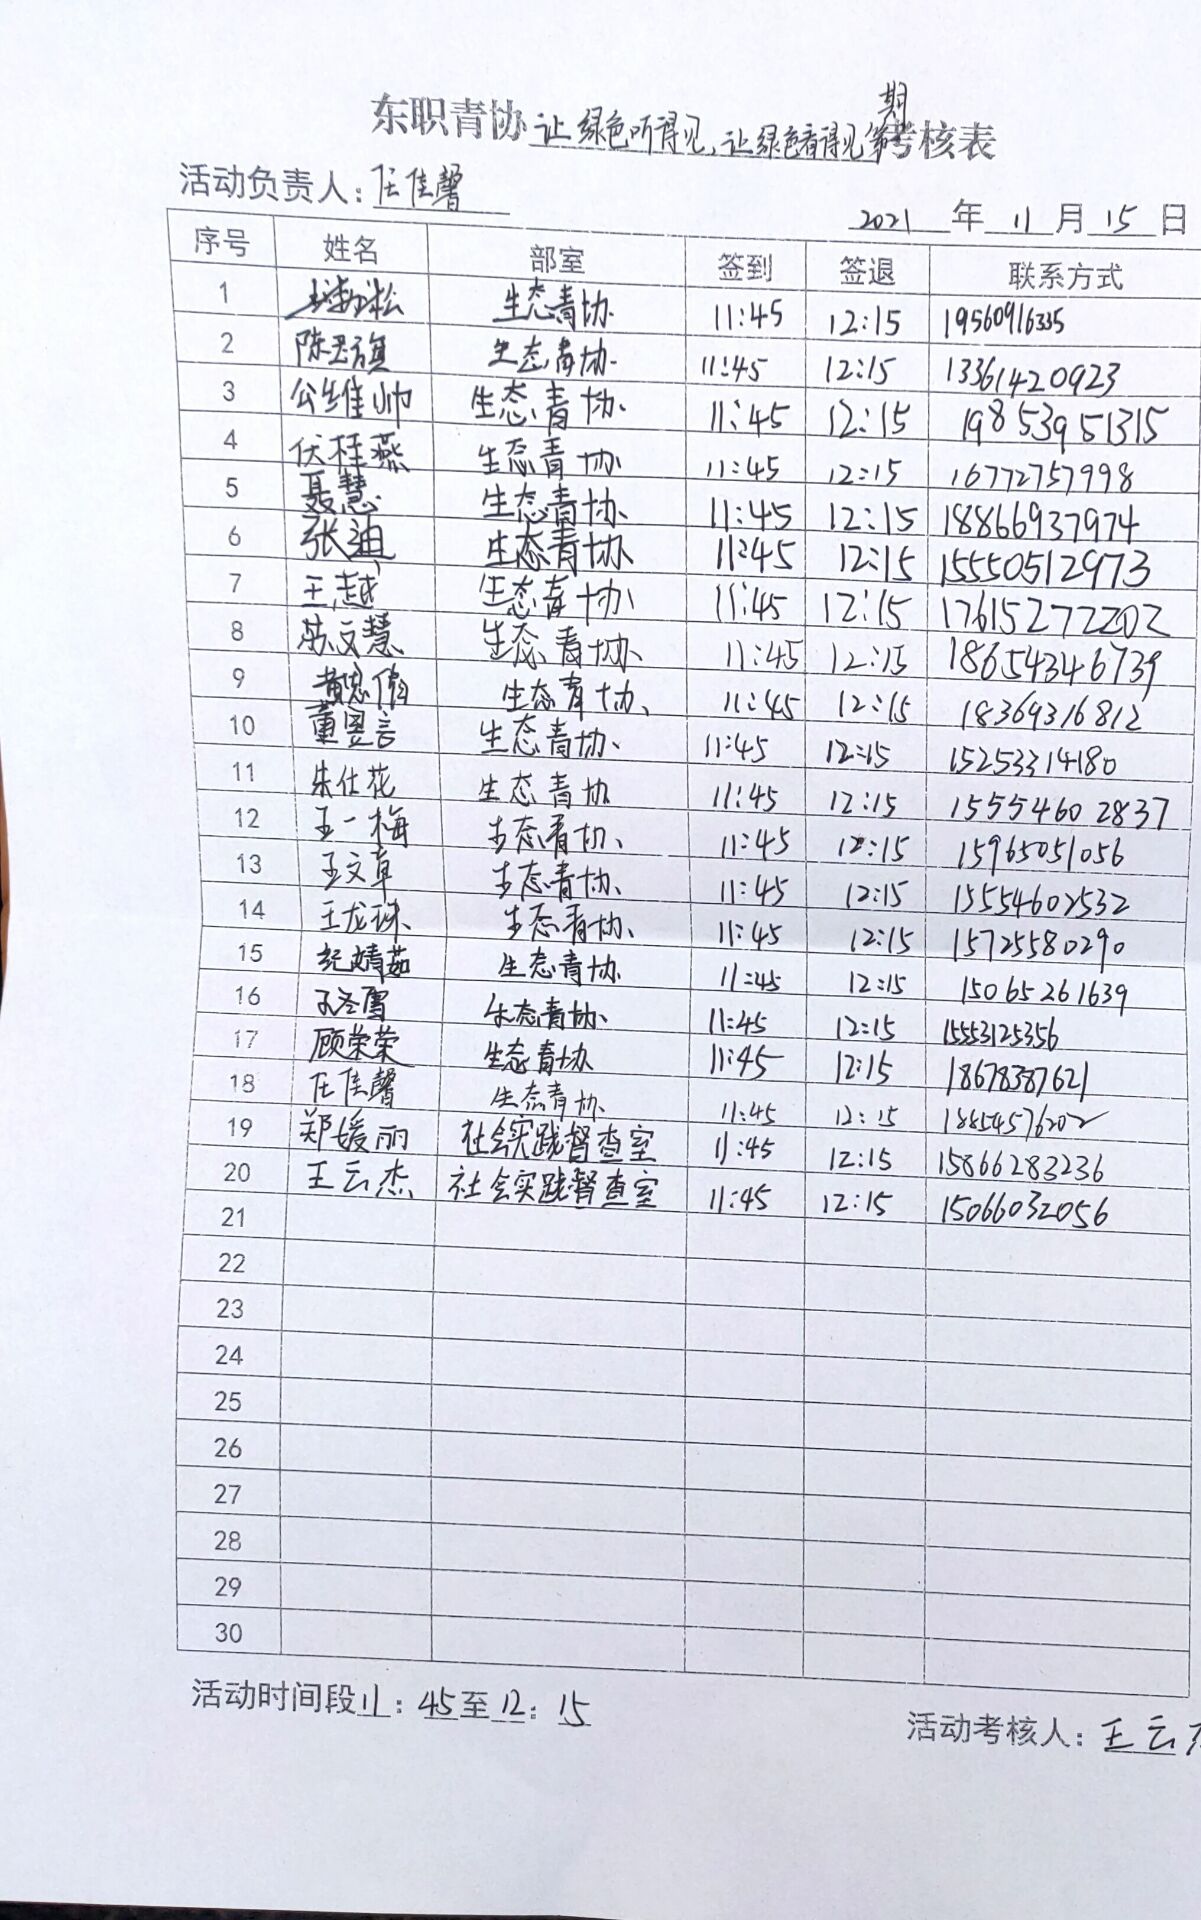 东职青协让绿色听得见,让绿色看得见第期考核表
活动负责人:任佳馨
2021年11月15日
序号 姓名 部室 签到 签退 联系方式
1 生态青协 11:45 12:15 19560916335
2 生态青协 11:45 12:15 13361420923
3 公维帅 生态青协 11:45 12:15 19853951315
4 伏桂燕 生态青协 11:45 12:15 16772757998
5 聂慧 生态青协 11:45 12:15 18866937974
6 张迪 生态青协 11:45 12:15 15550512973
7 王越 生态青协 11:45 12:15 17615272202
8 苏文慧 生态青协 11:45 12:15 18654346739
9 生态青协 11:45 12:15 18369316812
10 生态青协 11:45 12:15 15253314180
11 朱仕花 生态青协 11:45 12:15 15554602837
12 王一梅 生态青协 11:45 12:15 15965051056
13 王文卓 生态青协 11:45 12:15 15554602532
14 王龙珠 生态青协 11:45 12:15 15725580290
15 纪婧茹 生态青协 11:45 12:15 15065261639
16 孔冬雪 生态青协 11:45 12:15 15553125356
17 顾荣荣 生态青协 11:45 12:15 18678387621
18 任佳馨 生态青协 11:45 12:15 18854576202
19 郑媛丽 社会实践督查室 11:45 12:15 15866283236
20 王云杰 社会实践督查室 11:45 12:15 15066032056
21
22
23
24
25
26
27
28
29
30
活动时间段11:45至12:15
活动考核人:王云